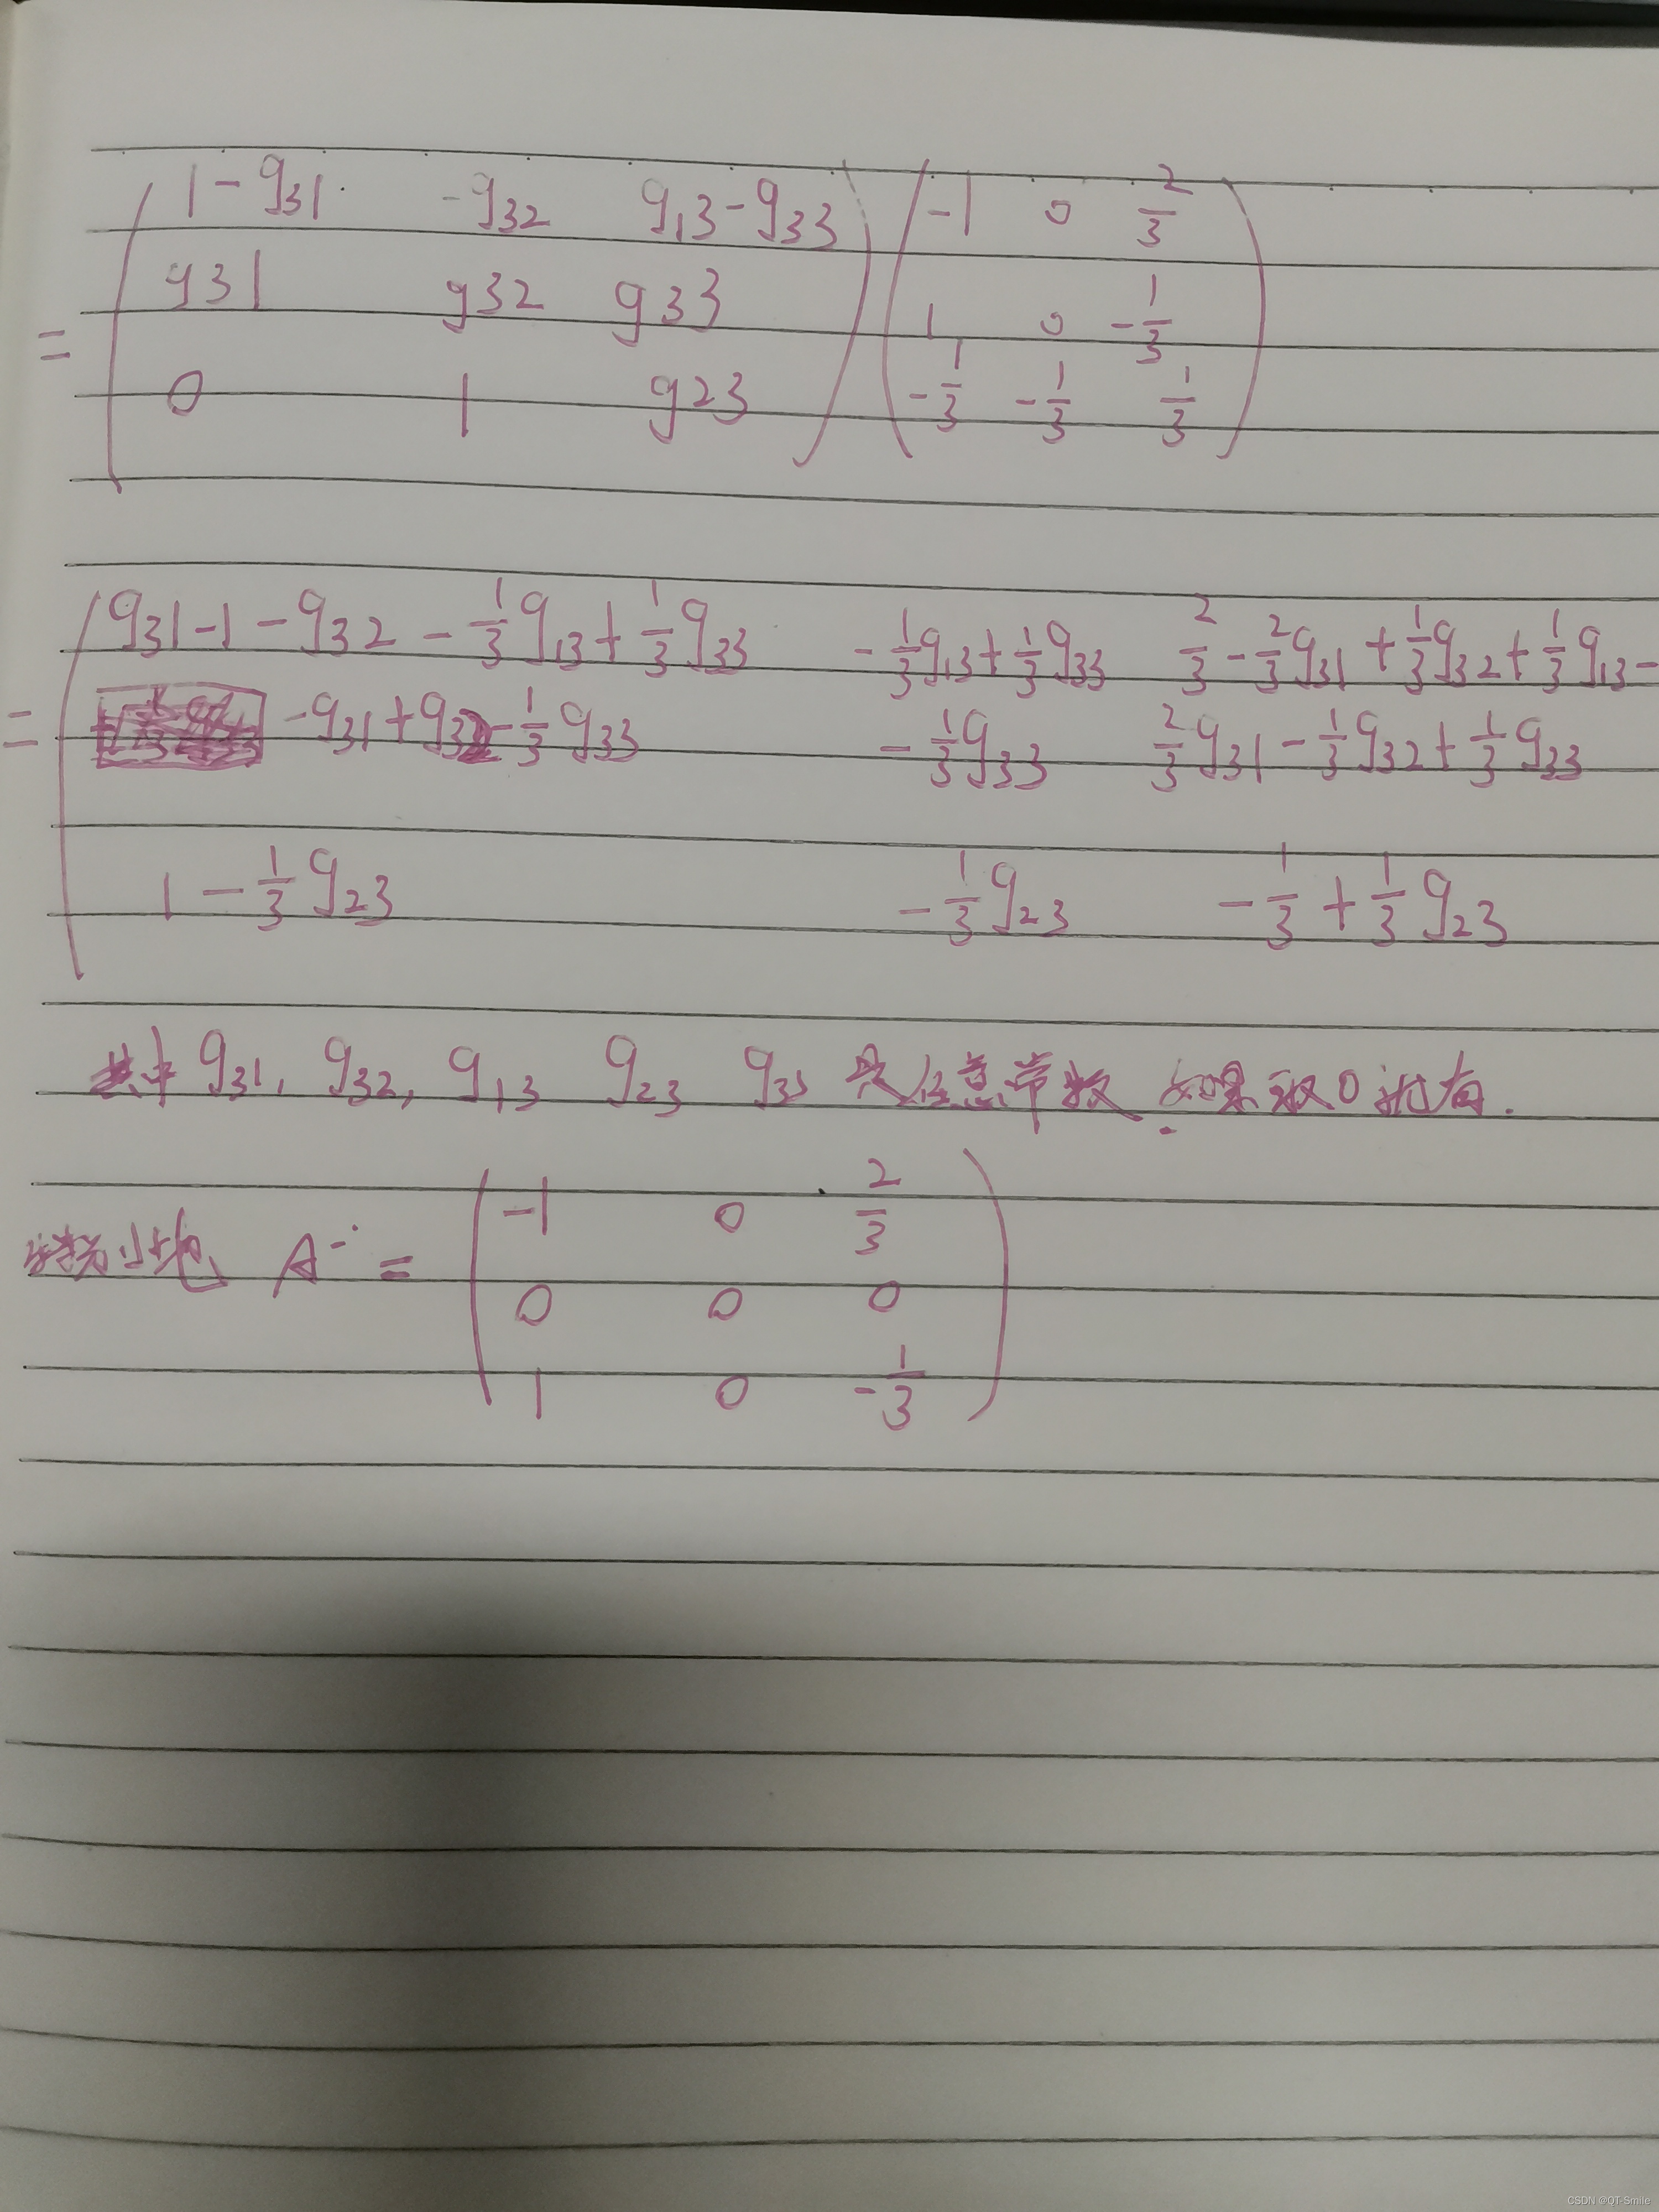 = ( 1-g31 -g32 g13-g33 ) ( -1 0 2/3 )
g31 g32 g33 1 0 -1/3
0 1 g23 -1/3 -1/3 1/3
= ( g31-1-g32-1/3g13+1/3g33 -1/3g13+1/3g33 2/3-2/3g31+1/3g32+1/3g13-
-g31+g32-1/3g33 -1/3g33 2/3g31-1/3g32+1/3g33
1-1/3g23 -1/3g23 -1/3+1/3g23
其中 g31, g32, g13 g23 g33 是任意常数. 如果取0就有.
特别地 A⁻ = ( -1 0 2/3 )
0 0 0
1 0 -1/3
CSDN @QT-Smile